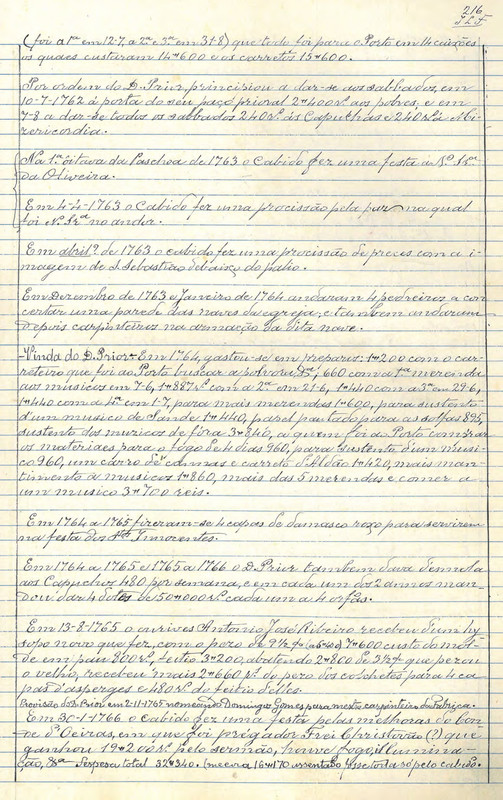 216
J.L.F
(foi a 1ª em 12-7, a 2ª e 3ª em 31-8) que tudo foi para o Porto em 14 caixões
os quaes custaram 14#600 e os carretos 15#600.
Por ordem do D. Prior principiou a dar-se aos sabbados, em
10-7-1762 á porta do seu paço prioral 2#400 rs. aos pobres, e em
7-8 a dar-se todos os sabbados 240 rs. ás Capuchas e 240 rs. á Mi-
zericordia.
Na 1ª oitava da Paschoa de 1763 o Cabido fez uma festa a N.ª Srª
da Oliveira.
Em 4-4-1763 o Cabido fez uma procissão pela paz na qual
foi N. Srª no andor.
Em abril de 1763 o cabido fez uma procissão de preces com a i-
magem de S. Sebastião debaixo do palio.
Em Dezembro de 1763 e Janeiro de 1764 andaram 4 pedreiros a con-
certar uma parede das naves da egreja, e tambem andaram
depois carpinteiros na armação da dita nave.
Vinda do D. Prior - Em 1764, gastou-se em preparos: 1#200 com o car-
reteiro que foi ao Porto buscar a polvora, 660 com a 1ª merenda
aos musicos em 7-6, 1#887 rs. com a 2ª em 21-6, 1#440 com a 3ª em 29-6,
1#440 com a 4ª em 1-7, para mais merendas 1#600, para sustento
d'um musico de Sande 1#440, papel pautado para as solfas 895,
sustento dos muzicos de fóra 3#840, a quem foi ao Porto comprar
os materiaes para o fogo de 4 dias 960, para sustento d'um musi-
co 960, um carro de cannas e carreto d'Aldão 1#420, mais man-
timento a musicos 1#860, mais das 5 merendas e comer a
um musico 3#700 reis.
Em 1764 a 1765 fizeram-se 4 capas de damasco roxo para servirem
na festa dos Stos Innocentes.
Em 1764 a 1765 e 1765 a 1766 o D. Prior tambem dava d'esmola
aos Capuchos 480 por semana, e em cada um dos 2 annos man-
dou dar 4 dotes de 50#000 rs. cada um a 4 orfãs.
Em 13-8-1765 o ourives Antonio José Ribeiro recebeu d'um hy-
sopo novo que fez, com o pezo de 7#600 custo do mol-
de em pau 300 rs., feitio 3#200, abatendo 2#800 de 3½ que pezou
o velho, recebeu mais 2#660 rs. do pezo dos colchetes para 4 ca-
pas d'asperges e 480 rs. do feitio d'elles.
Provisão do D. Prior em 2-11-1765 nomeando Domingos Gomes para mestre carpinteiro da Fabrica.
Em 30-1-1766 o Cabido fez uma festa pelas melhoras do Con-
de d'Oeiras, em que foi prégador Frei Christovão (?) que
ganhou 19#200 rs. pelo sermão, houve fogo, illumina-
ção, &ª. Despesa total 32#340.